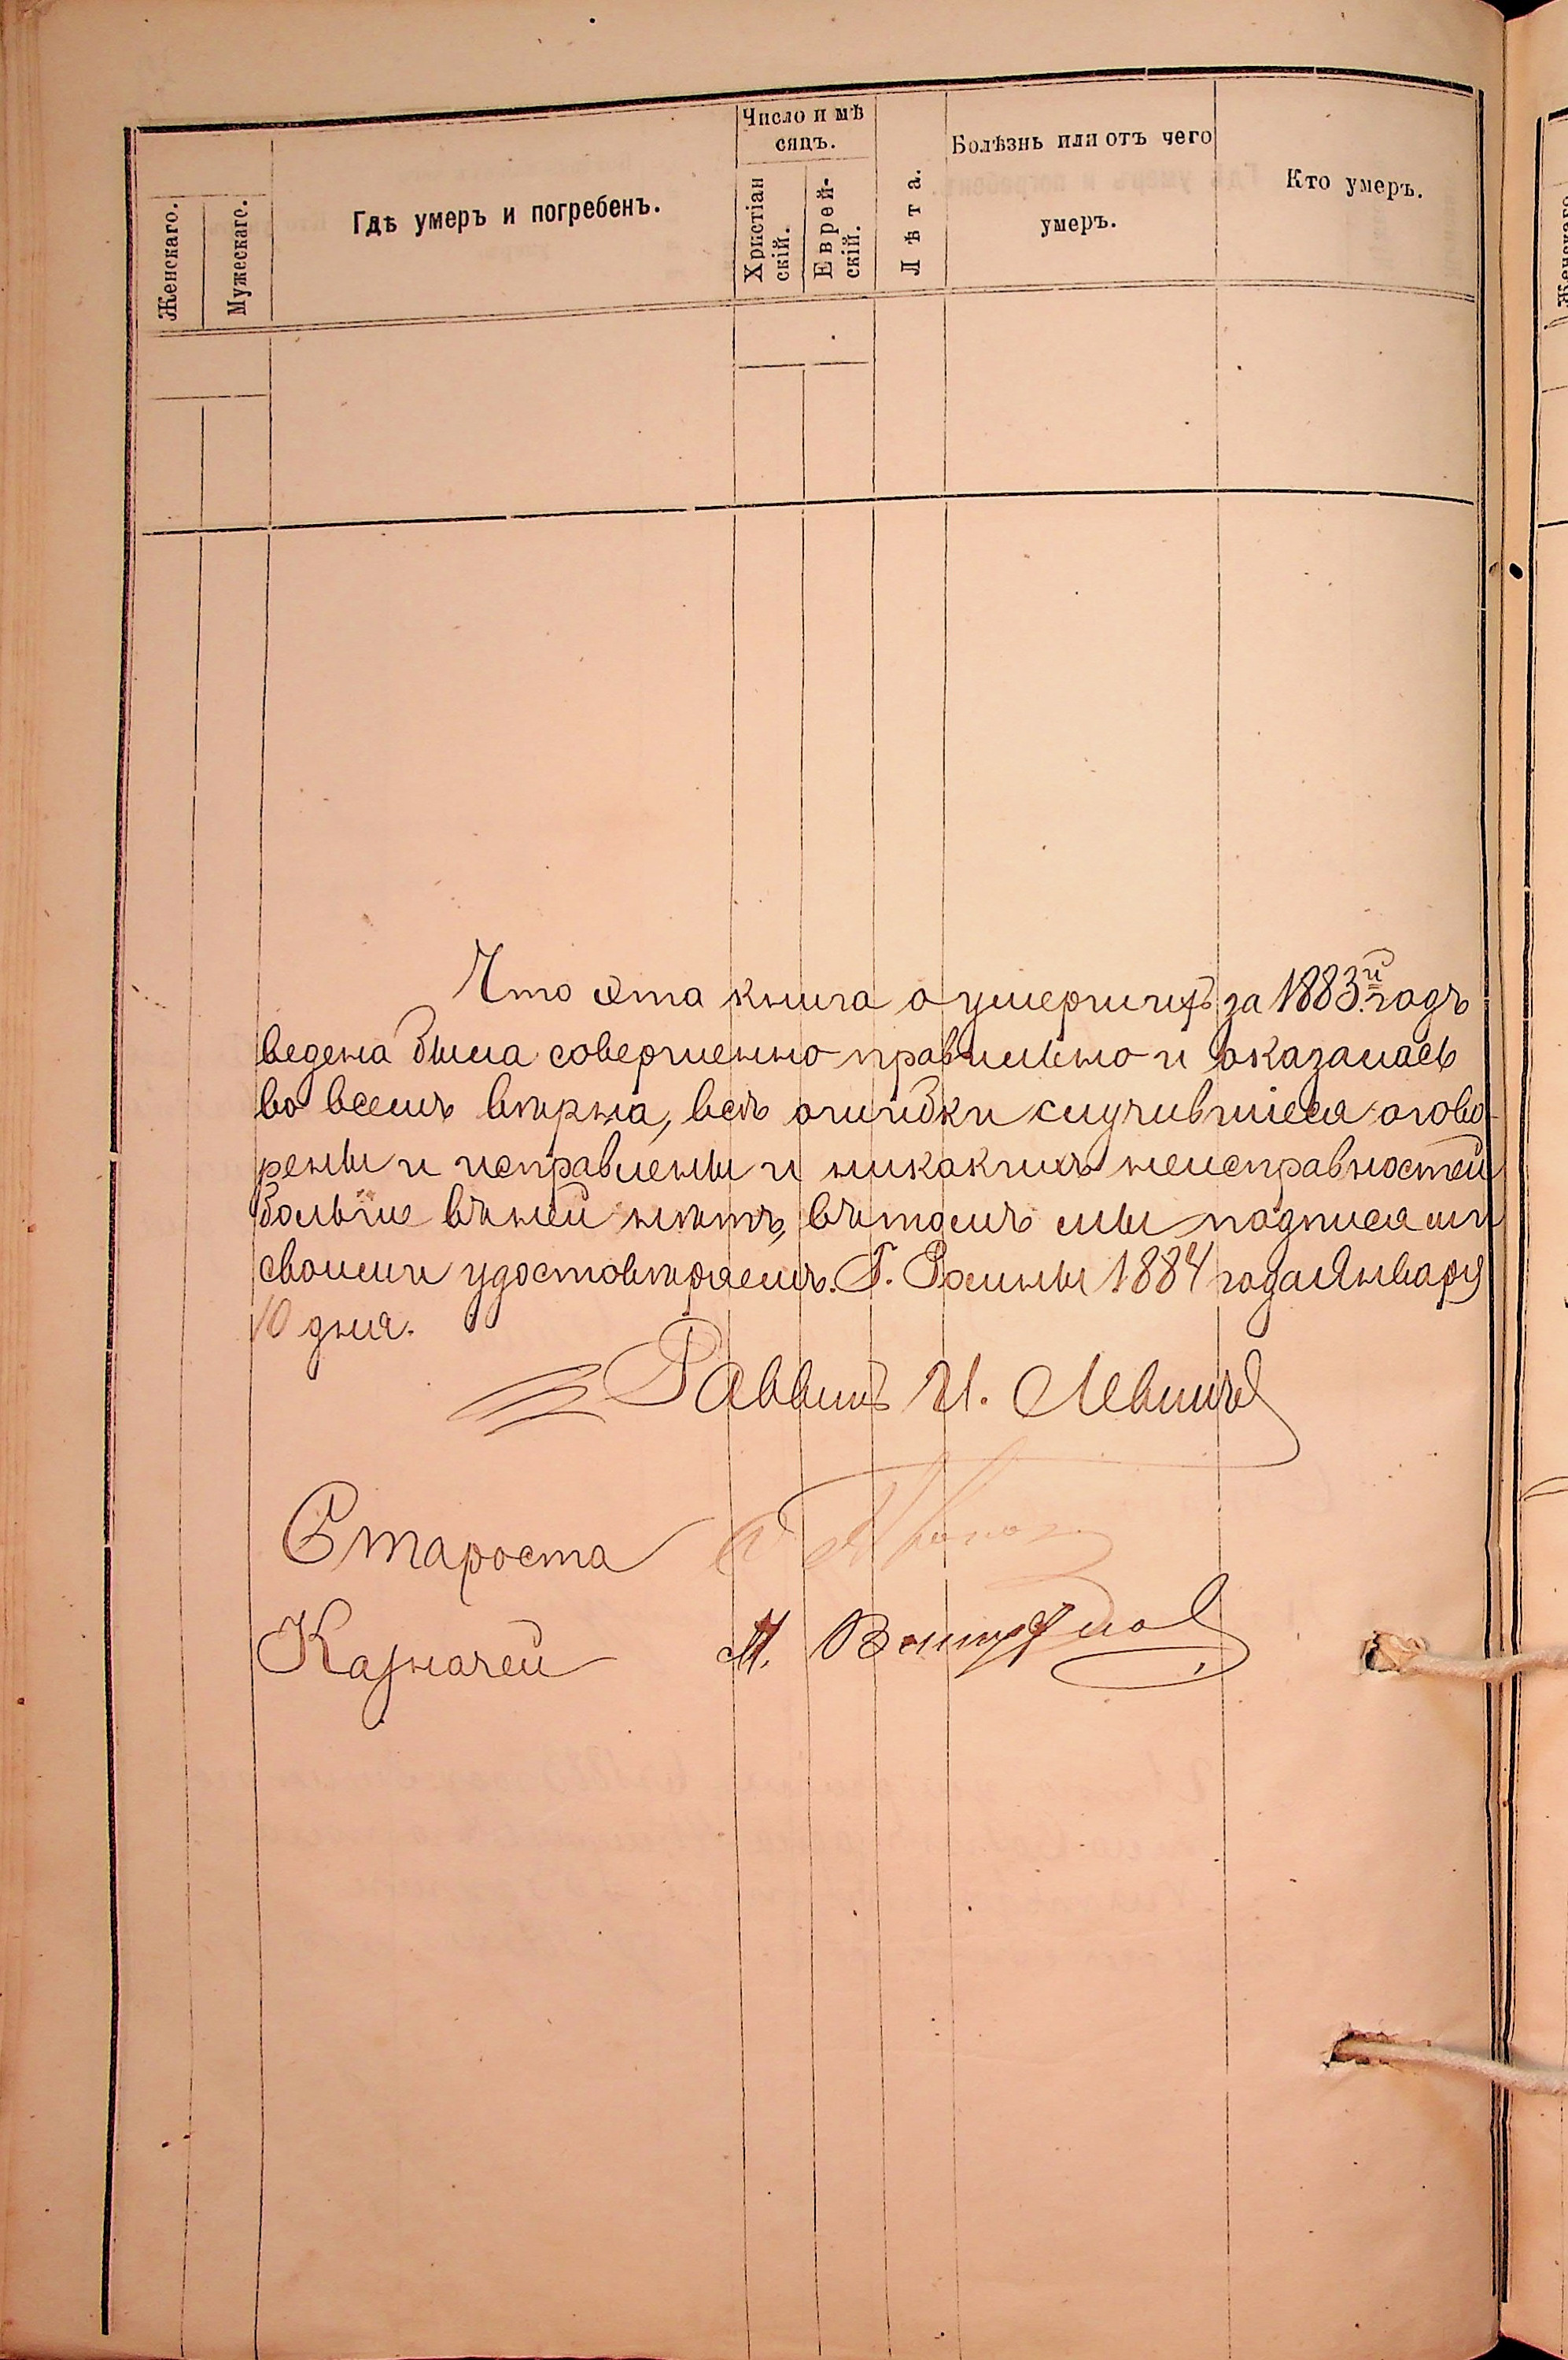 Женскаго.
Мужескаго.
Гдѣ умеръ и погребенъ.
Число и мѣ
сяцъ.
Христіан
скій.
Еврей-
скій.
Лѣта.
Болѣзнь или отъ чего
умеръ.
Кто умеръ.
Что эта книга о умершихъ за 1883й годъ
ведена была совершенно правильно и оказалась
во всемъ вѣрна, всѣ ошибки случившіеся огово-
рены и исправлены и никакихъ неисправностей
больше въ ней нѣтъ, въ томъ мы подписями
своими удостовѣряемъ. Г. Ромны 1884 года Января
10 дня.
Раввинъ И. Левинъ
Староста
Казначей М.
Женскаго